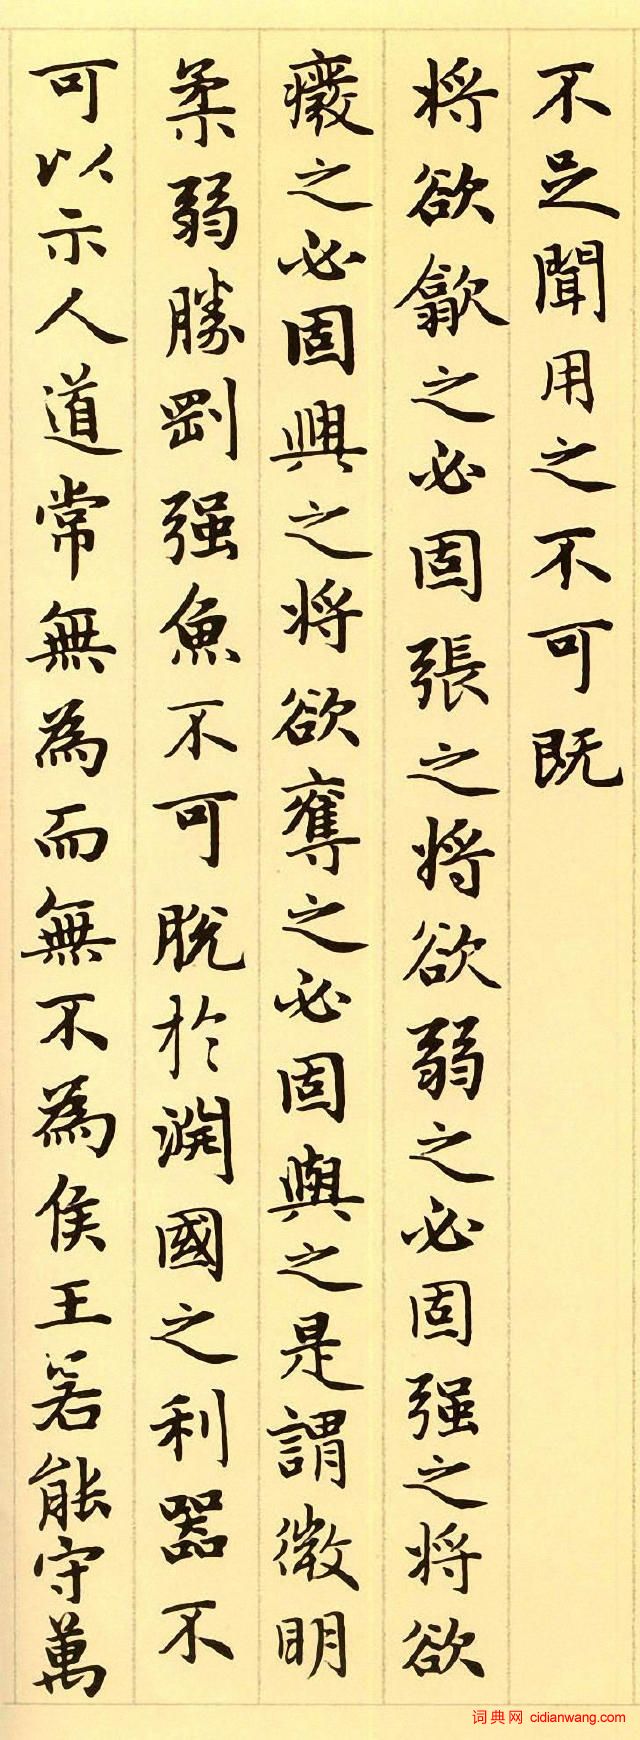 不足聞用之不可既
將欲歙之必固張之將欲弱之必固强之將欲
癈之必固興之將欲奪之必固與之是謂微明
柔弱勝剛强魚不可脫於淵國之利器不
可以示人道常無為而無不為侯王若能守萬
词典网 cidianwang.com